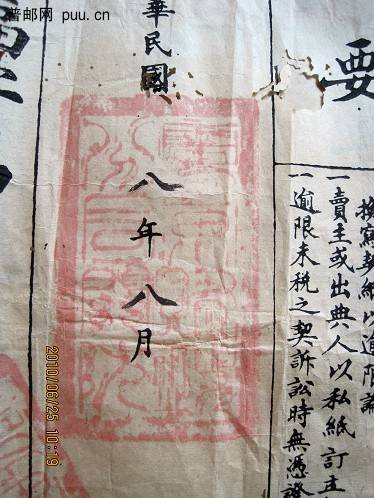 普邮网 puu.cn
要
撰寫契紙以逾限論
一賣主或出典人以私紙訂立
一逾限未税之契訴訟時無憑證
華民國
八年八月
2010/06/25 10:19